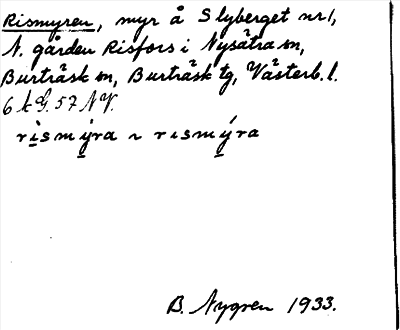 Rismyren, myr å Slyberget nr 1,
N. gården Risfors i Nysätra sn,
Burträsk sn, Burträsk tg, Västerb. l.
6 k G. 57 N V.
rìsmýra ~ rısmýra
B. Nygren 1933.